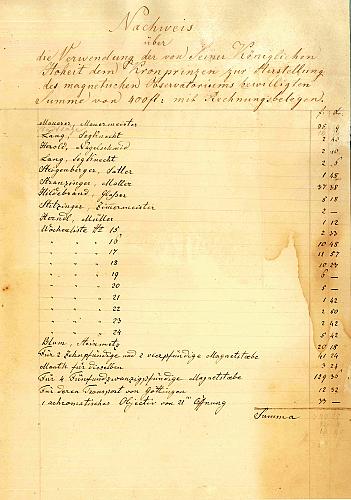 Nachweis
über
die Verwendung der von Seiner Königlichen
Hoheit dem Kronprinzen zur Herstellung
des magnetischen Observatoriums bewilligten
Summe von 400 fl: mit Rechnungsbelegen.
Maurer, Mauermeister
Lang, Seglknecht
Herold, Nagelschmid
Lang, Seglknecht
Steigenberger, Sattler
Stranzinger, Maller 37 38
Hildebrand, Glaser 5 18
Stitzinger, Zimmermeister 2 —
Herndl, Müller 1 12
Wochenliste No 15 2 33
" " " 16 10 48
" " " 17 11 57
" " " 18 10 27
" " " 19 6 —
" " " 20 5 —
" " " 21 1 42
" " " 22 2 60
" " " 23 2 42
" " " 24 5 42
Blum, Steinmetz 20 18
Für 2 Zehnpfündige und 2 vierpfündige Magnetstæbe 41 24
Mauth für dieselben 3 24
Für 4 Fünfundzwanzigpfündige Magnetstæbe 129 30
Für deren Transport von Göttingen 12 32
1 achromatisches Objectiv von 21''' Öffnung 33 —
Summa